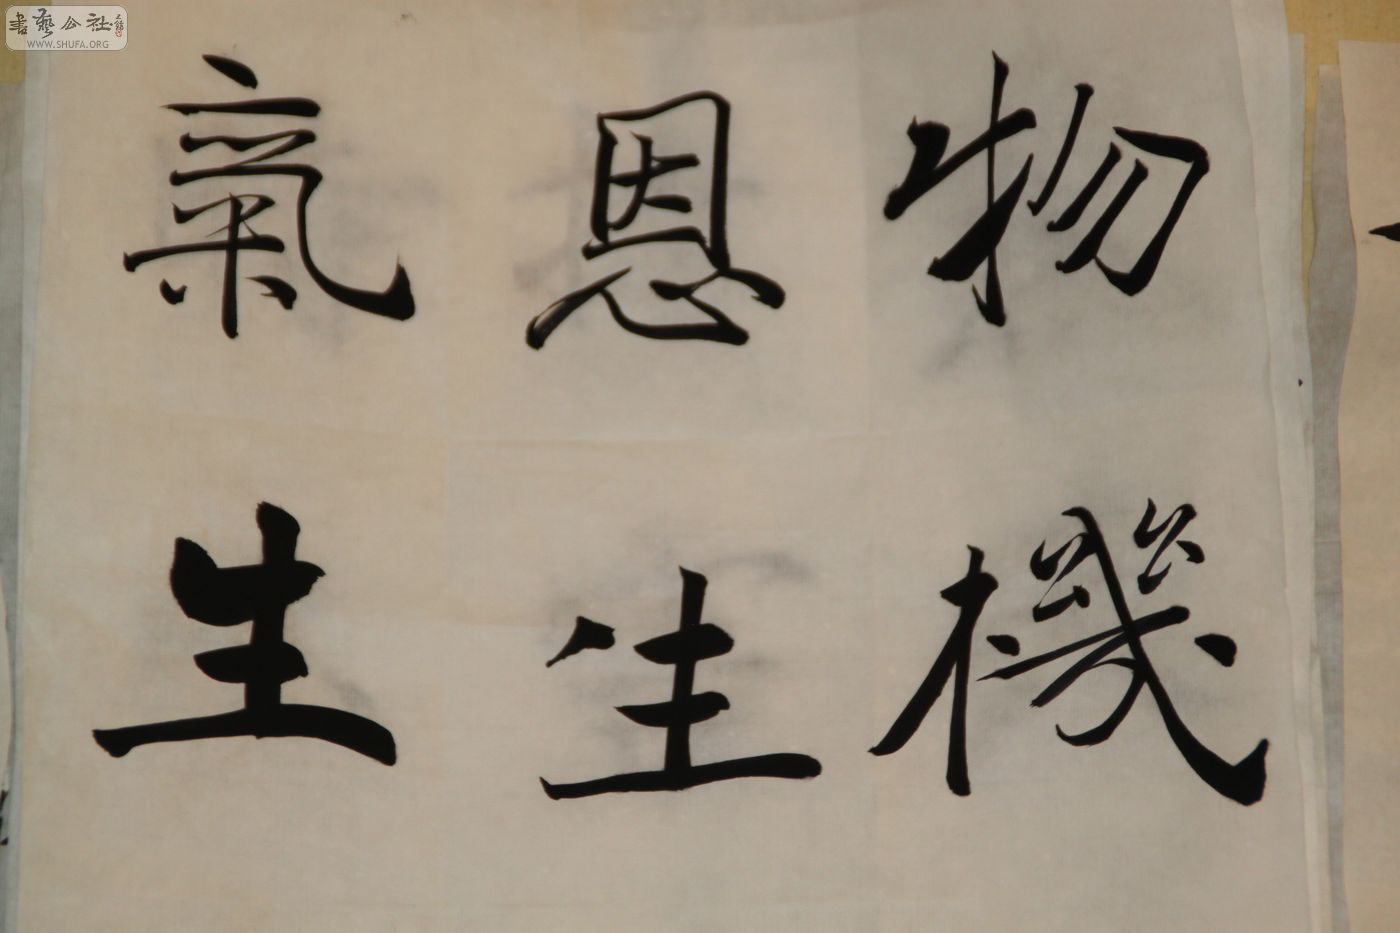 物機
恩生
氣生
書藝公社
WWW.SHUFA.ORG